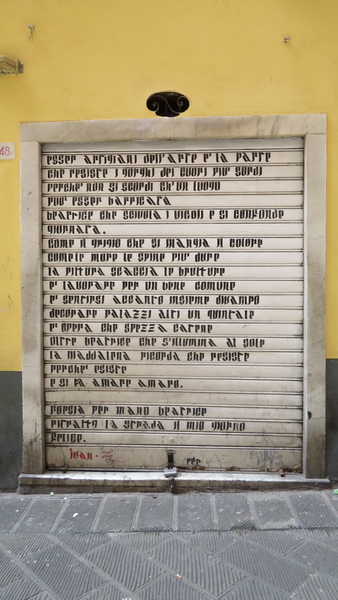 48r
esser artigiani dell'arte e' la parte
che resiste i gorghi dei cuori piu' sordi
perche' non si scordi ch'un luogo
puo' esser barricata
beatrice che scivola i vicoli e si confonde
giornata.
come il grigio che si mangia il colore
come le more le spine piu' dure
la pittura scaccia le brutture
e' lavorare per un bene comune
e' sentirsi accanto insieme divampo
decorare palazzi altri un quintale
e' opera che spezza catene
oltre beatrice che s'illumina al sole
la maddalena ricorda che resiste
perche' esiste
e si fa amare amaro.
poesia per mano beatrice
ritratto la strada il mio
felice.